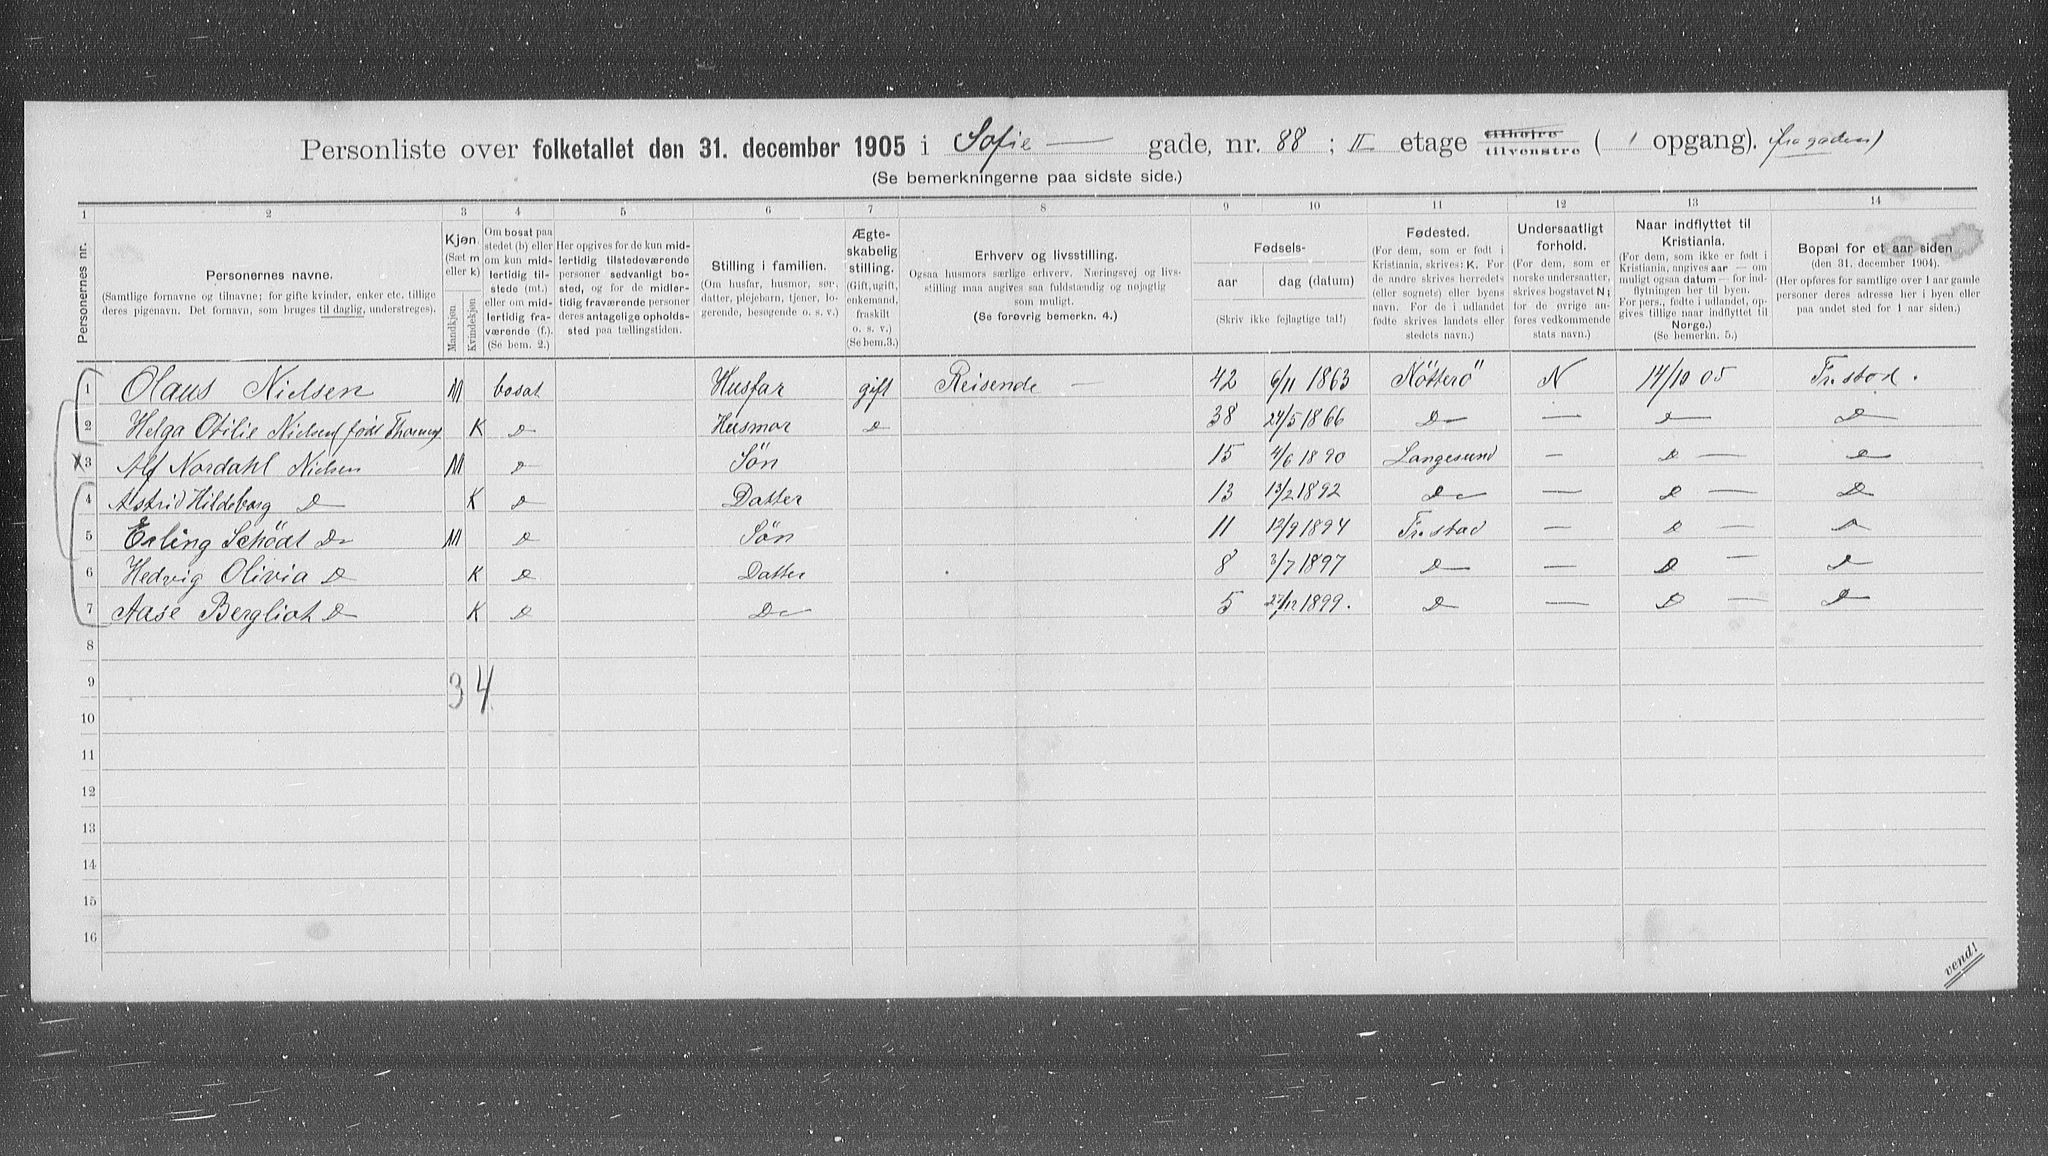 Personliste over folketallet den 31. december 1905 i Sofie — gade, nr. 88 ; II etage tilhøjre tilvenstre ( 1 opgang). (fra gaden)
(Se bemerkningerne paa sidste side.)
1 2 3 4 5 6 7 8 9 10 11 12 13 14
Personernes nr.
Personernes navne.
(Samtlige fornavne og tilnavne; for gifte kvinder, enker etc. tillige
deres pigenavn. Det fornavn, som bruges til daglig, understreges).
Kjøn
(Sæt m
eller k)
Mandkjøn
Kvindekjøn
Om bosat paa
stedet (b) eller
om kun mid-
lertidig til-
stede (mt.)
eller om mid-
lertidig fra-
værende (f.).
(Se bem. 2.)
Her opgives for de kun mid-
lertidig tilstedeværende
personer sedvanligt bo-
sted, og for de midler-
tidig fraværende personer
deres antagelige opholds-
sted paa tællingstiden.
Stilling i familien.
(Om husfar, husmor, søn,
datter, plejebarn, tjener, lo-
gerende, besøgende o. s. v.)
Ægte-
skabelig
stilling.
(Gift, ugift,
enkemand,
fraskilt
o. s. v.)
(Se bem.3.)
Erhverv og livsstilling.
Ogsaa husmors særlige erhverv. Næringsvej og livs-
stilling maa angives saa fuldstændig og nøjagtig
som muligt.
(Se forøvrig bemerkn. 4.)
Fødsels-
aar dag (datum)
(Skriv ikke fejlagtige tal!)
Fødested.
(For dem, som er født i
Kristiania, skrives: K. For
de andre skrives herredets
(eller sognets) eller byens
navn. For de i udlandet
fødte skrives landets eller
stedets navn.)
Undersaatligt
forhold.
(For dem, som er
norske undersaatter,
skrives bogstavet N;
for de øvrige an-
føres vedkommende
stats navn.)
Naar indflyttet til
Kristiania.
(For dem, som ikke er født i
Kristiania, angives aar — om
muligt ogsaa datum — for ind-
flytningen her til byen.
For pers., fødte i udlandet, op-
gives tillige naar indflyttet til
Norge.)
(Se bemerkn. 5.)
Bopæl for et aar siden
(den 31. december 1904).
(Her opføres for samtlige over 1 aar gamle
personer deres adresse her i byen eller
paa andet sted for 1 aar siden.)
1 Olaus Nielsen M bosat Husfar gift Reisende — 42 6/11 1863 Nötterö N 14/10 05 Fr.stad.
2 Helga Otilie Nielsen (født K D Husmor D 38 24/5 1866 Do — D — D
x3 Alf Nordahl Nielsen M D Søn 15 4/6 1890 Langesund — D — D
4 Astrid Hildeborg D K D Datter 13 13/2 1892 Do — D — D
5 Erling Schödt Do M D Søn 11 12/9 1894 Fr.stad — D — D
6 Hedvig Olivia D K D Datter 8 3/7 1897 D — D — D
7 Aase Bergliot D K D Do 5 27/12 1899. D — D — D
8
9 3 4
10
11
12
13
14
15
16
vend!